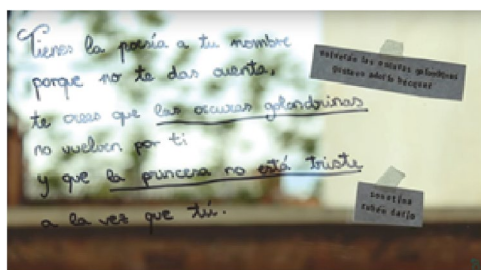 Tienes la poesía a tu nombre
porque no te das cuenta,
te crees que las oscuras golondrinas
no vuelven por ti
y que la princesa no está triste
a la vez que tú.
volverán las oscuras golondrinas
gustavo adolfo bécquer
sonatina
rubén darío